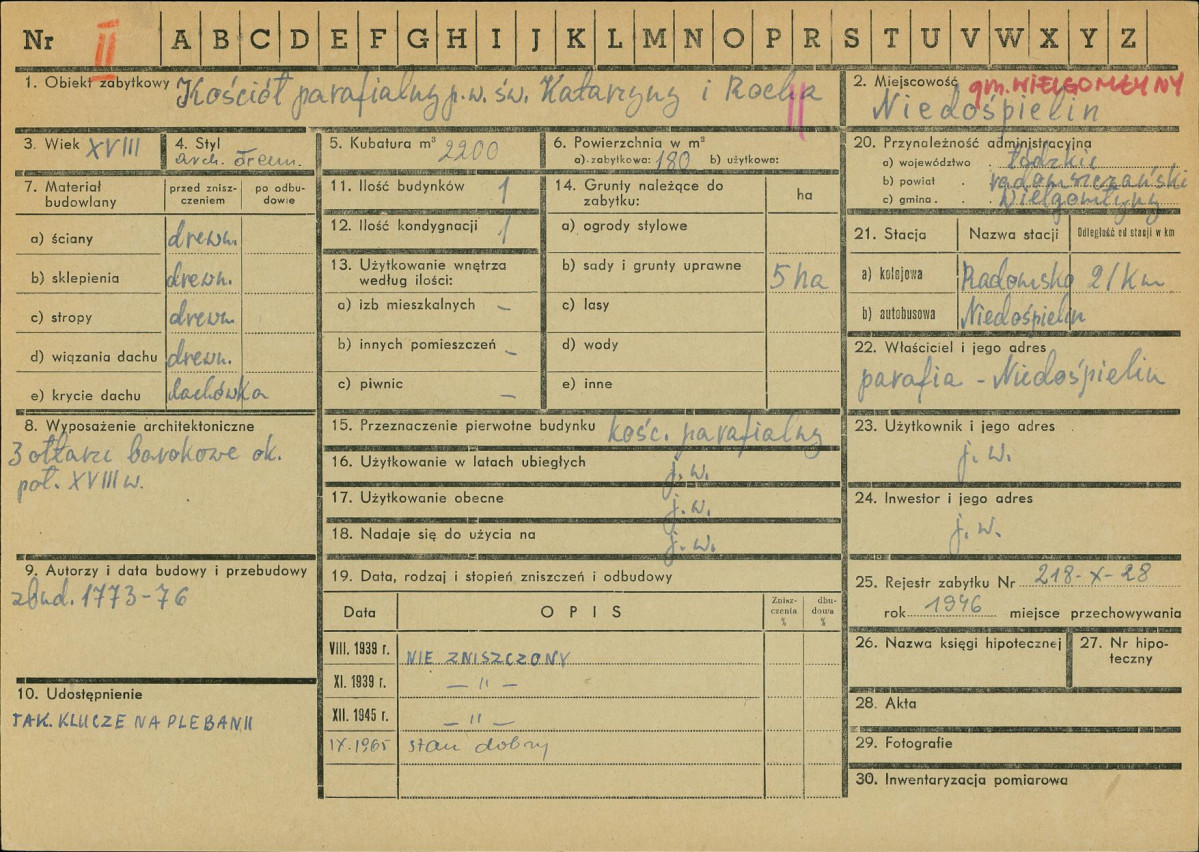 Nr II A B C D E F G H I J K L M N O P R S T U V W X Y Z
1. Obiekt zabytkowy Kościół parafialny p.w. św. Katarzyny i Rocha
2. Miejscowość gm. WIELGOMŁYNY
Niedośpielin
3. Wiek XVIII
4. Styl
arch. drewn.
5. Kubatura m³ 2200
6. Powierzchnia w m²
a) zabytkowa: 180 b) użytkowa:
7. Materiał budowlany
przed znisz-
czeniem
po odbu-
dowie
a) ściany drewn.
b) sklepienia drewn.
c) stropy drewn.
d) wiązania dachu drewn.
e) krycie dachu dachówka
8. Wyposażenie architektoniczne
3 ołtarze barokowe ok.
poł. XVIII w.
9. Autorzy i data budowy i przebudowy
zbud. 1773-76
10. Udostępnienie
TAK. KLUCZE NA PLEBANII
11. Ilość budynków 1
12. Ilość kondygnacji 1
13. Użytkowanie wnętrza
według ilości:
a) izb mieszkalnych –
b) innych pomieszczeń –
c) piwnic –
14. Grunty należące do
zabytku:
ha
a) ogrody stylowe
b) sady i grunty uprawne 5 ha
c) lasy
d) wody
e) inne
15. Przeznaczenie pierwotne budynku kośc. parafialny
16. Użytkowanie w latach ubiegłych j. w.
17. Użytkowanie obecne j. w.
18. Nadaje się do użycia na j. w.
19. Data, rodzaj i stopień zniszczeń i odbudowy
Data OPIS
Znisz-
czenia
%
dbu-
dowa
%
VIII. 1939 r. NIE ZNISZCZONY
XI. 1939 r. — " —
XII. 1945 r. — " —
IX. 1965 stan dobry
20. Przynależność administracyjna
a) województwo łódzkie
b) powiat radomszczański
c) gmina Wielgomłyny
21. Stacja Nazwa stacji Odległość od stacji w km
a) kolejowa Radomsko 21 km
b) autobusowa Niedośpielin
22. Właściciel i jego adres
parafia - Niedośpielin
23. Użytkownik i jego adres
j. w.
24. Inwestor i jego adres
j. w.
25. Rejestr zabytku Nr 218-X-28
rok 1946 miejsce przechowywania
26. Nazwa księgi hipotecznej
27. Nr hipo-
teczny
28. Akta
29. Fotografie
30. Inwentaryzacja pomiarowa